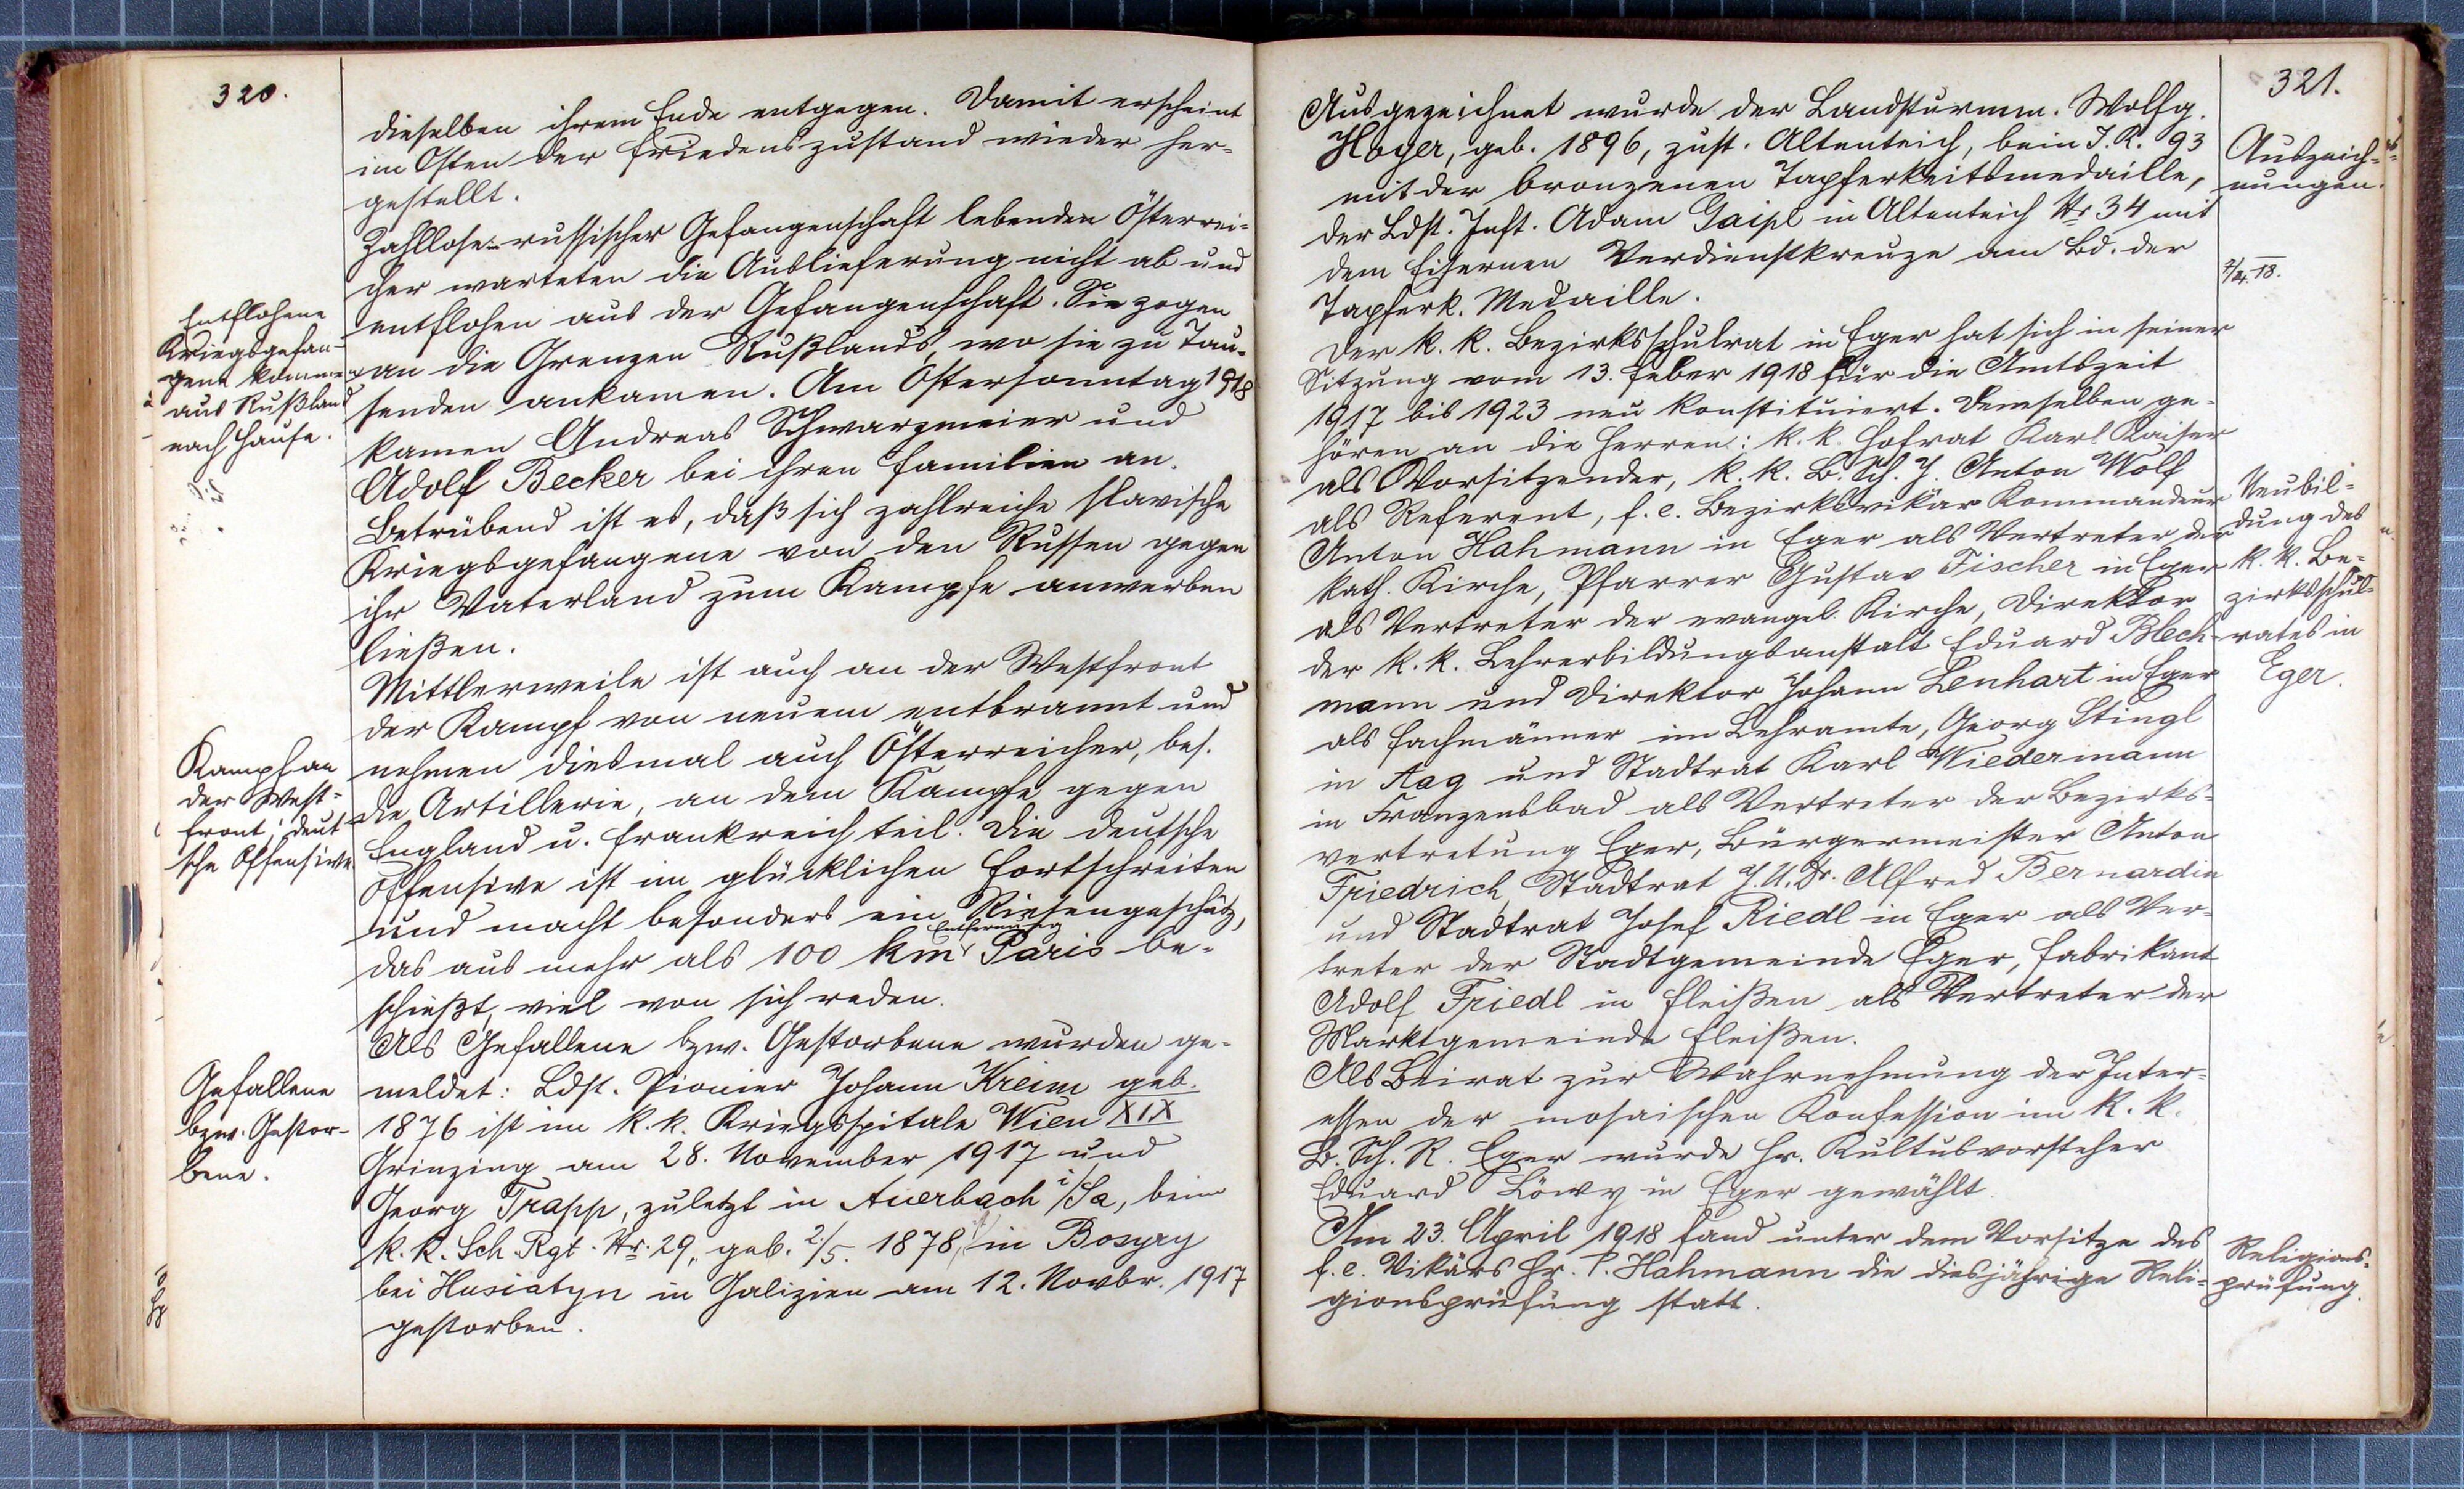 320.
dieselben ihrem Ende entgegen. Damit erscheint
im Osten der Friedenszustand wieder her-
gestellt.
Zahllose russischer Gefangenschaft lebenden Österrei-
cher warteten die Auslieferung nicht ab und
entflohen aus der Gefangenschaft. Sie zogen
an die Grenzen Rußlands, wo sie zu Tau-
senden ankamen. Am Ostersonntag 1918
kamen Andreas Schwarzmeier und
Adolf Becker bei ihren Familien an.
Betrübend ist es, daß sich zahlreiche slavische
Kriegsgefangene von den Russen gegen
ihr Vaterland zum Kampfe anwerben
ließen.
Mittlerweile ist auch an der Westfront
der Kampf von neuem entbrannt und
nehmen diesmal auch Österreicher, bes.
die Artillerie, an dem Kampfe gegen
England u. Frankreich teil. Die deutsche
Offensive ist im glücklichen Fortschreiten
und macht besonders ein Riesengeschütz,
das aus mehr als 100 km Entfernung Paris be-
schießt, viel von sich reden.
Als Gefallene bzw. Gestorbene wurden ge-
meldet: Ldst. Pionier Johann Kreim geb.
1876 ist im k. k. Kriegsspitale Wien XIX
Grinzing am 28. November 1917 und
Georg Trapp, zuletzt in Auerbach i/Sa, beim
k. k. Sch. Rgt. Nr. 29, geb. 2./5. 1878, in Bosyry
bei Husiatyn in Galizien am 12. Novbr. 1917
gestorben.
Entflohene
Kriegsgefan-
gene kommen
aus Rußland
nach Hause.
Kampf an
der West-
front; deut-
sche Offensive.
Gefallene
bzw. Gestor-
bene.
321.
Ausgezeichnet wurde der Landsturmm. Wolfg.
Hoyer, geb. 1896, zust. Altenteich, beim I. R. 93
mit der bronzenen Tapferkeitsmedaille,
der Ldst. Inft. Adam Gaipl in Altenteich Nr 34 mit
dem Eisernen Verdienstkreuze am Bd. der
Tapferk. Medaille.
Der k. k. Bezirksschulrat in Eger hat sich in seiner
Sitzung vom 13. Feber 1918 für die Amtszeit
1917 bis 1923 neu konstituiert. Demselben ge-
hören an die Herren: k. k. Hofrat Karl Kaiser
als Vorsitzender, k. k. B. Sch. I. Anton Wolf
als Referent, f. e. Bezirksvikär Kommandeur
Anton Hahmann in Eger als Vertreter der
kath. Kirche, Pfarrer Gustav Fischer in Eger
als Vertreter der evangel. Kirche, Direktor
der k. k. Lehrerbildungsanstalt Eduard Blech-
mann und Direktor Johann Lenhart in Eger
als Fachmänner im Lehramte, Georg Stingl
in Aag und Stadtrat Karl Wiedermann
in Franzensbad als Vertreter der Bezirks-
vertretung Eger, Bürgermeister Anton
Friedrich, Stadtrat J. U. Dr. Alfred Bernardin
und Stadtrat Josef Riedl in Eger als Ver-
treter der Stadtgemeinde Eger, Fabrikant
Adolf Friedl in Fleißen als Vertreter der
Marktgemeinde Fleißen.
Als Beirat zur Wahrnehmung der Inter-
essen der mosaischen Konfession im k. k.
B. Sch. R. Eger wurde Hr. Kultusvorsteher
Eduard Löwy in Eger gewählt.
Am 23. April 1918 fand unter dem Vorsitze des
f. e. Vikärs Hr. P. Hahmann die diesjährige Reli-
gionsprüfung statt.
Auszeich-
nungen.
Neubil-
dung des
k. k. Be-
zirksschul-
rates in
Eger.
Religions-
prüfung.